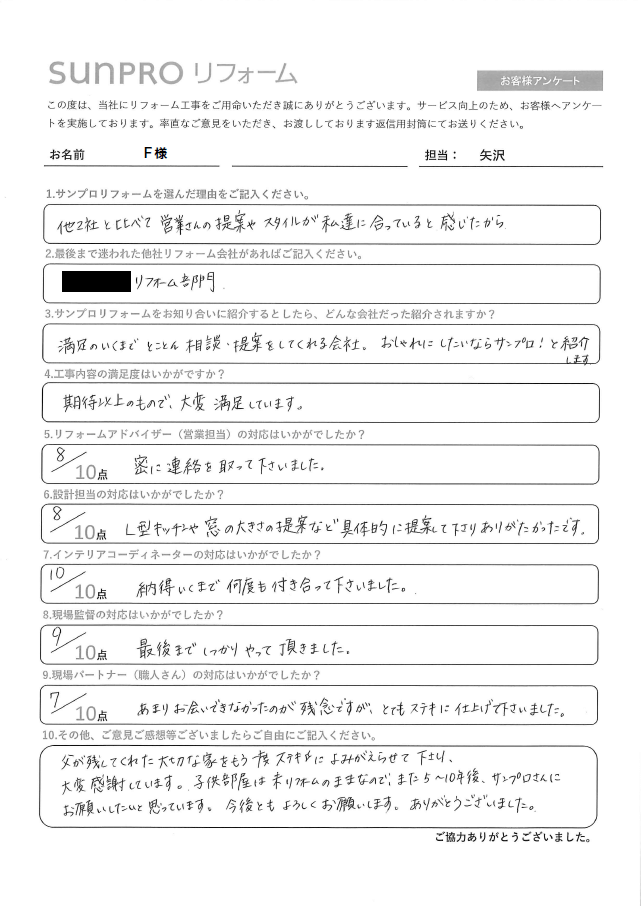 sunpro リフォーム
お客様アンケート
この度は、当社にリフォーム工事をご用命いただき誠にありがとうございます。サービス向上のため、お客様へアンケー
トを実施しております。率直なご意見をいただき、お渡ししております返信用封筒にてお送りください。
お名前 F様 担当： 矢沢
1.サンプロリフォームを選んだ理由をご記入ください。
他2社と比べて営業さんの提案やスタイルが私達に合っていると感じたから
2.最後まで迷われた他社リフォーム会社があればご記入ください。
リフォーム部門
3.サンプロリフォームをお知り合いに紹介するとしたら、どんな会社だった紹介されますか？
満足のいくまでとことん相談・提案をしてくれる会社。おしゃれにしたいならサンプロ！と紹介
します
4.工事内容の満足度はいかがですか？
期待以上のもので、大変満足しています。
5.リフォームアドバイザー（営業担当）の対応はいかがでしたか？
8/10点 密に連絡を取って下さいました。
6.設計担当の対応はいかがでしたか？
8/10点 L型キッチンや窓の大きさの提案など具体的に提案して下さりありがたかったです。
7.インテリアコーディネーターの対応はいかがでしたか？
10/10点 納得いくまで何度も付き合って下さいました。
8.現場監督の対応はいかがでしたか？
9/10点 最後までしっかりやって頂きました。
9.現場パートナー（職人さん）の対応はいかがでしたか？
7/10点 あまりお会いできなかったのが残念ですが、とてもステキに仕上げて下さいました。
10.その他、ご意見ご感想等ございましたらご自由にご記入ください。
父が残してくれた大切な家をもう一度ステキによみがえらせて下さり、
大変感謝しています。子供部屋は未リフォームのままなので、また5〜10年後、サンプロさんに
お願いしたいと思っています。今後ともよろしくお願いします。ありがとうございました。
ご協力ありがとうございました。